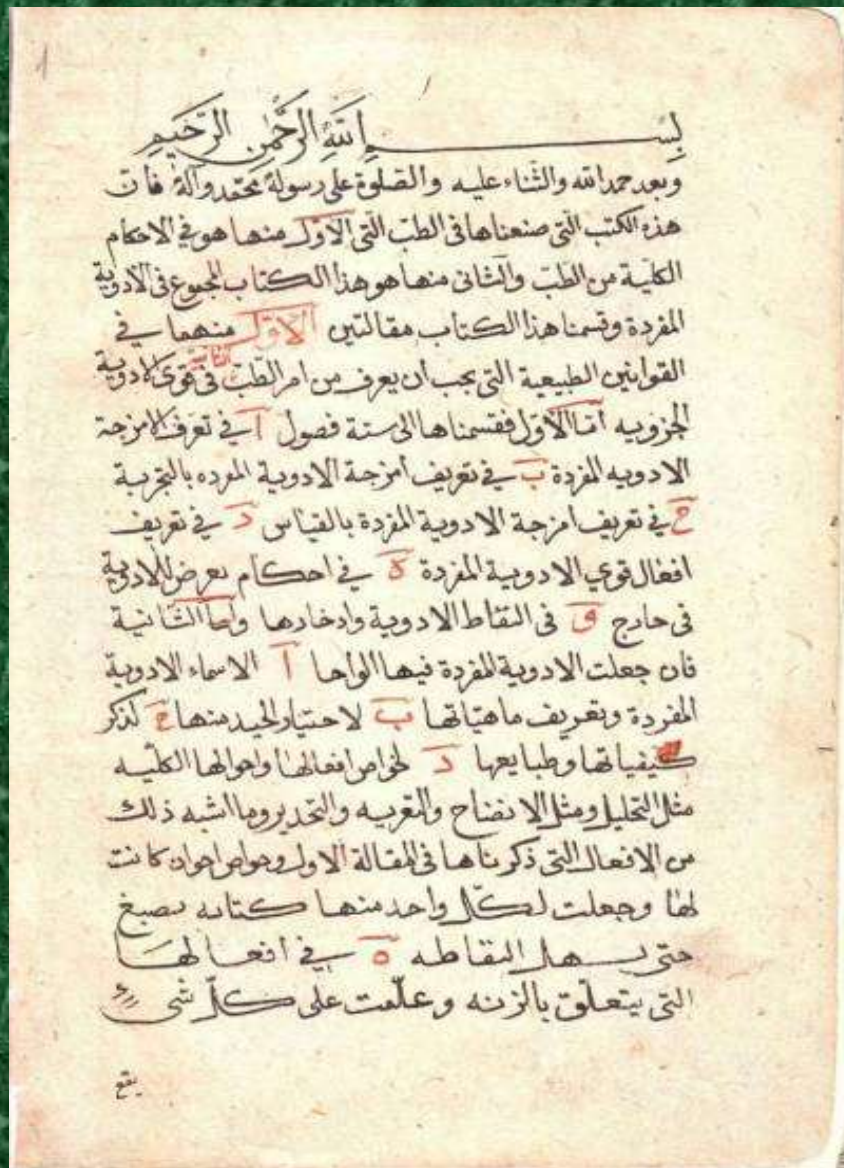 1
بسم الله الرحمن الرحيم
وبعد حمد الله والثناء عليه والصلوة على رسولة محمد وآلة فان
هذه الكتب التى صنعناها فى الطب التى الاول منها هو في الاحكام
الكلية من الطب والثانى منها هو هذا الكتاب المجموع فى الادوية
المفردة وقسمنا هذا الكتاب مقالتين الاول منهما في
القوانين الطبيعية التى يجب ان يعرف من امر الطب الثانية فى قوى الادوية
الجزويه أما الاول فقسمناها الى ستة فصول آ في تعرف الامزجة
الادويه المفردة ب في تعريف أمزجة الادوية المفرده بالتجربة
ج في تعريف امزجة الادوية المفردة بالقياس د في تعريف
افعال قوي الادوية المفردة ه في احكام يعرض للادوية
فى خارج و فى التقاط الادوية وادخارها واما الثانية
فان جعلت الادوية المفردة فيها الواحا آ الاسماء الادوية
المفردة وتعريف ماهياتها ب لاختيار الجيد منها ج لذكر
كيفياتها وطبايعها د لخواص افعالها واحوالها الكليه
مثل التحليل ومثل الانضاج والتغريه والتخدير وما اشبه ذلك
من الافعال التى ذكرناها فى المقالة الاول وخواص اخر ان كانت
لها وجعلت لكل واحد منها كتابه بصبغ
حتى يسهل التقاطه ه في افعالها
التى يتعلق بالزنه وعلمت على كل شى
يقع